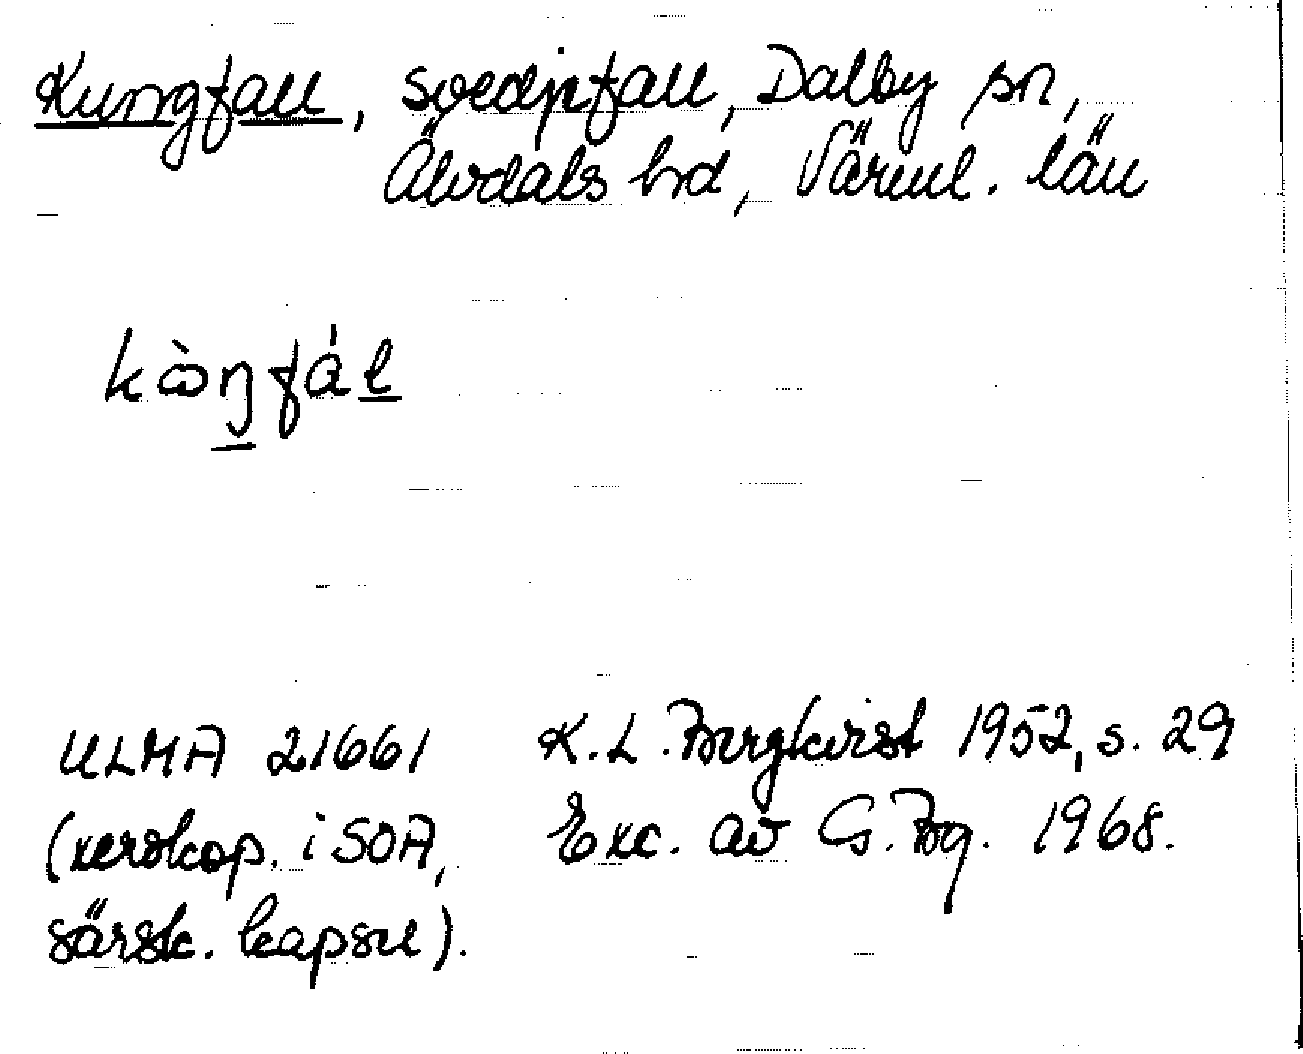 Kungfall, svedjefall, Dalby sn,
Älvdals hd, Värml. län
kòŋfál
ULMA 21661 K.L. Bergkvist 1952, s. 29
(xeroxkop. i SOA, Exc. av G. Bg. 1968.
särsk. kapsel).